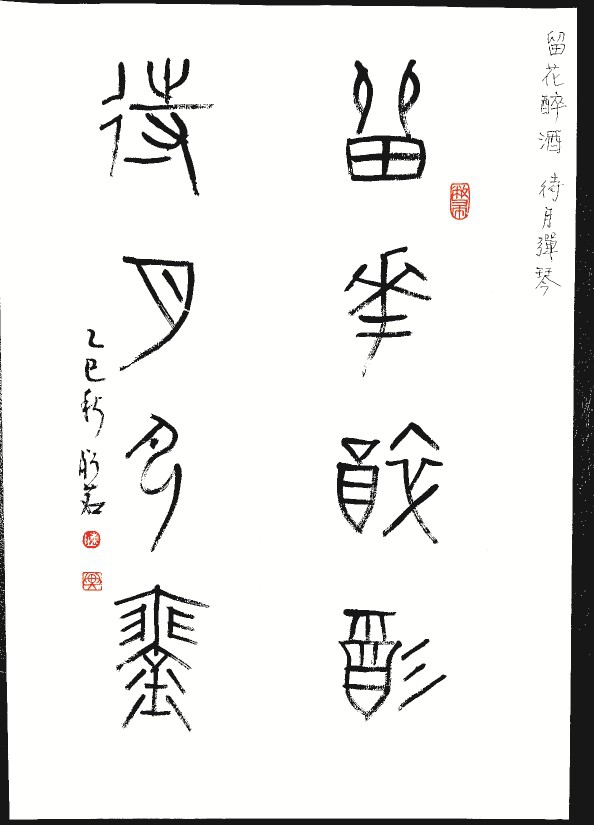 留花醉酒 待月彈琴
留花醉酒
待月彈琴
乙巳秋